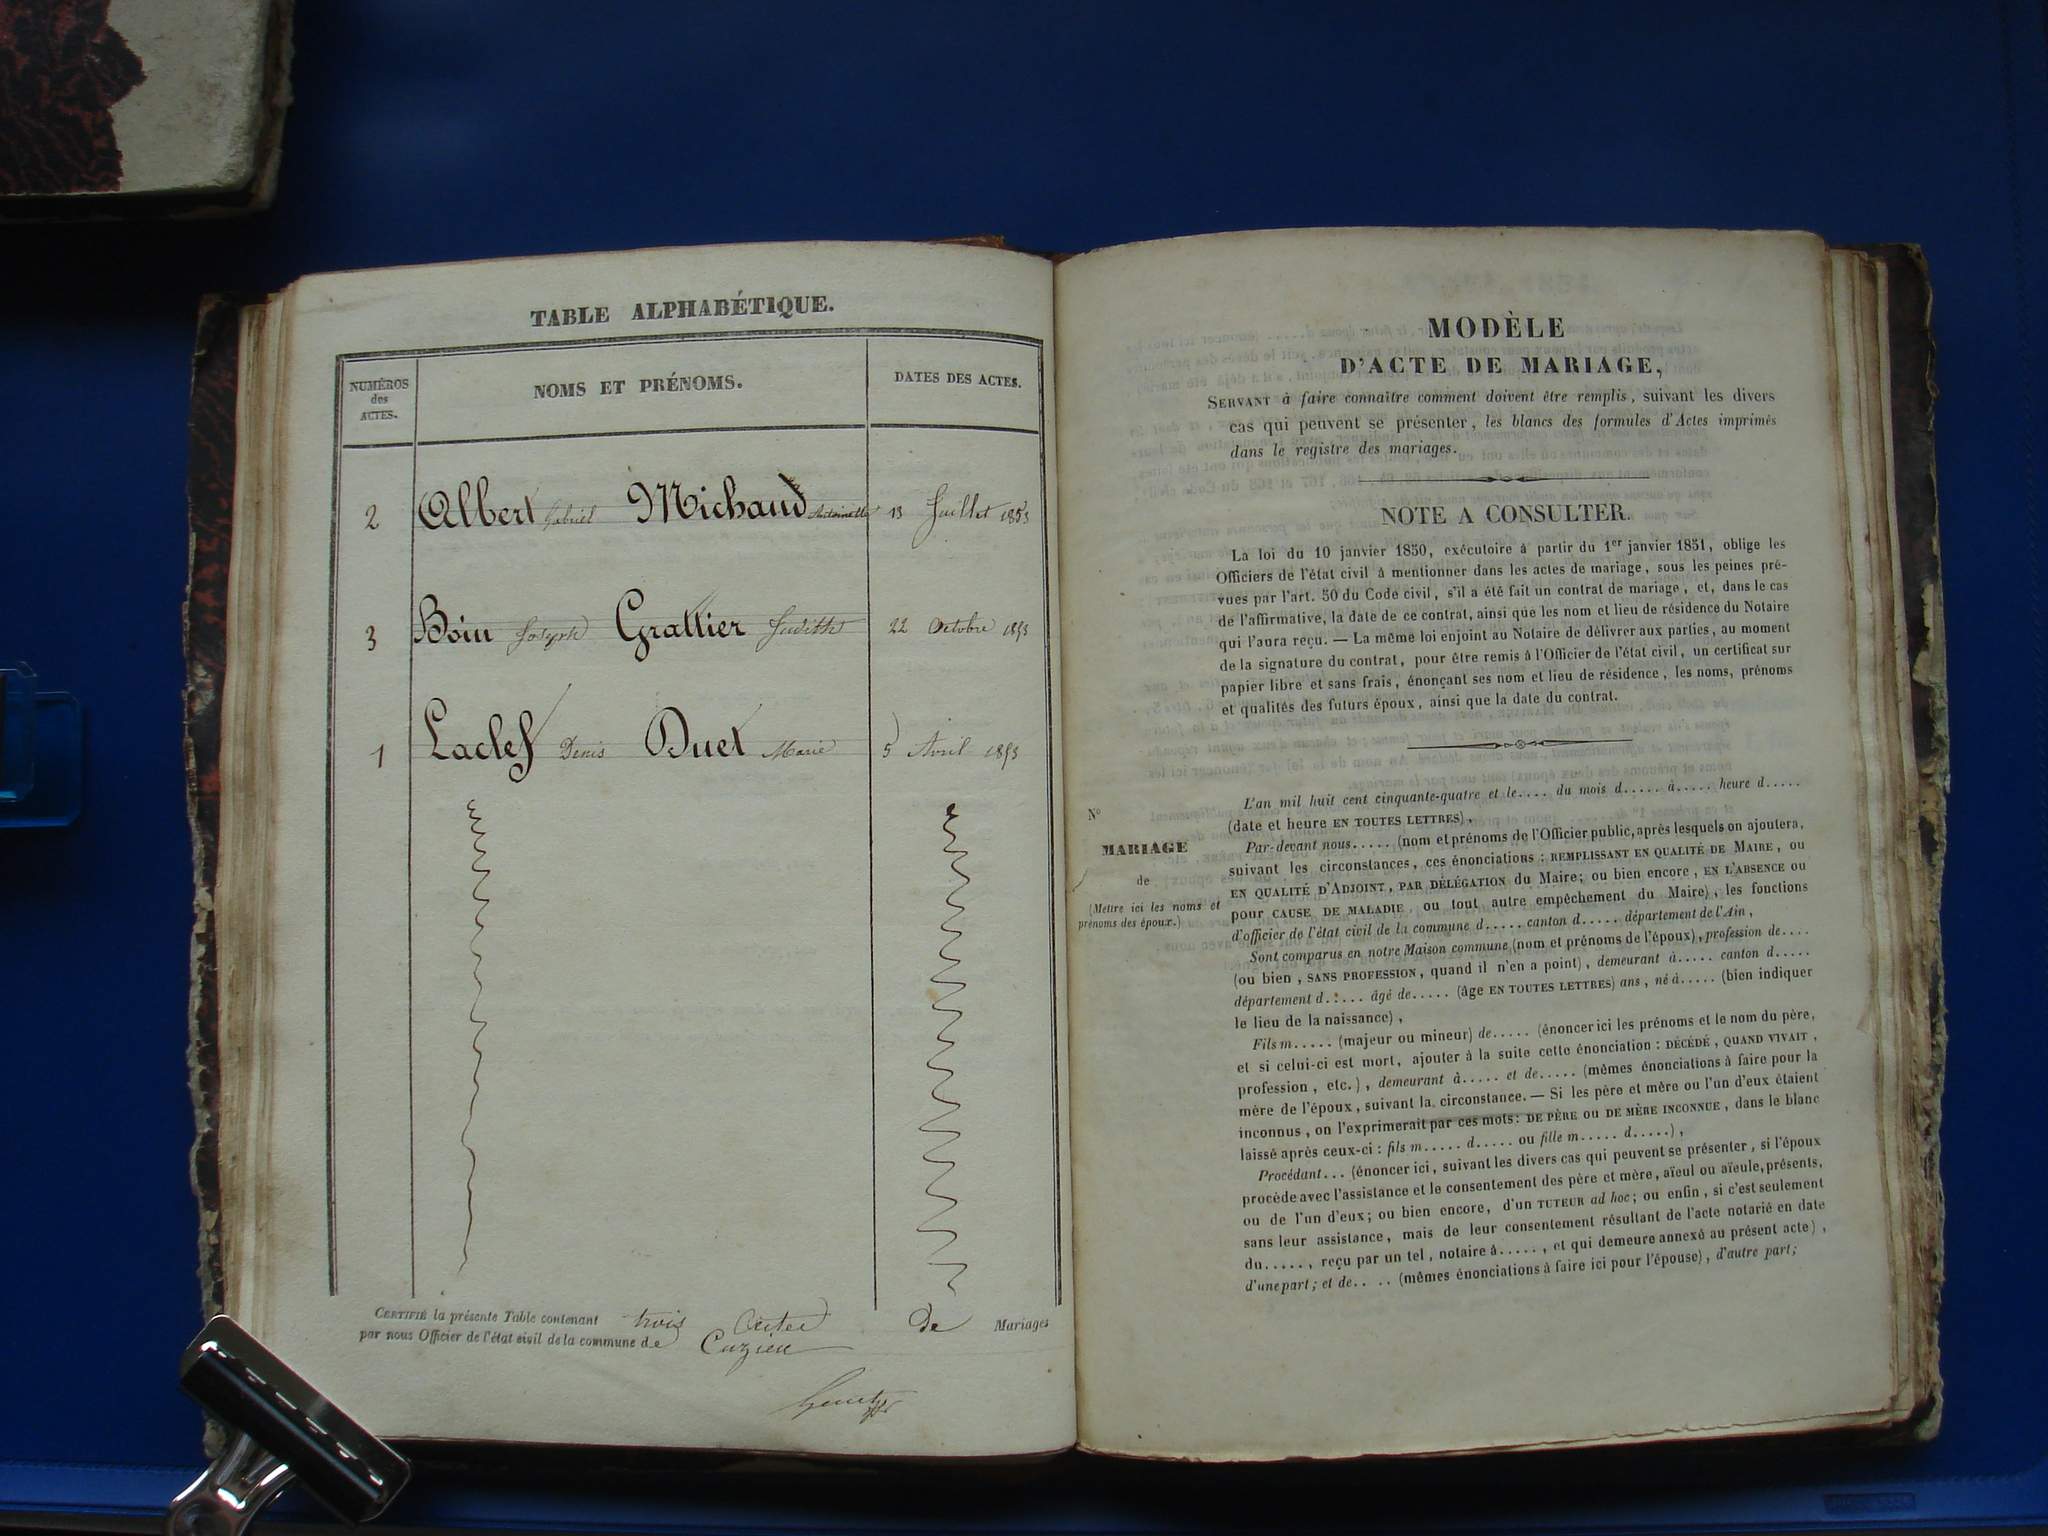 TABLE ALPHABÉTIQUE.
NUMÉROS
des
ACTES.
NOMS ET PRÉNOMS.
DATES DES ACTES.
2 Albert Gabriel Michaud Antoinette 13 Juillet 1853
3 Boin Joseph Grattier Judith 22 Octobre 1853
1 Laclef Denis Duet Marie 5 Avril 1853
CERTIFIÉ la présente Table contenant trois Actes de Mariages
par nous Officier de l'état civil de la commune de Cuzieu
MODÈLE
D'ACTE DE MARIAGE,
SERVANT à faire connaître comment doivent être remplis, suivant les divers
cas qui peuvent se présenter, les blancs des formules d'Actes imprimés
dans le registre des mariages.
NOTE A CONSULTER.
La loi du 10 janvier 1850, exécutoire à partir du 1er janvier 1851, oblige les
Officiers de l'état civil à mentionner dans les actes de mariage, sous les peines pré-
vues par l'art. 50 du Code civil, s'il a été fait un contrat de mariage, et, dans le cas
de l'affirmative, la date de ce contrat, ainsi que les nom et lieu de résidence du Notaire
qui l'aura reçu. — La même loi enjoint au Notaire de délivrer aux parties, au moment
de la signature du contrat, pour être remis à l'Officier de l'état civil, un certificat sur
papier libre et sans frais, énonçant ses nom et lieu de résidence, les noms, prénoms
et qualités des futurs époux, ainsi que la date du contrat.
No
MARIAGE
de
(Mettre ici les noms et
prénoms des époux.)
L'an mil huit cent cinquante-quatre et le.... du mois d..... à..... heure d.....
(date et heure EN TOUTES LETTRES),
Par-devant nous..... (nom et prénoms de l'Officier public, après lesquels on ajoutera,
suivant les circonstances, ces énonciations : REMPLISSANT EN QUALITÉ DE MAIRE, ou
EN QUALITÉ D'ADJOINT, PAR DÉLÉGATION du Maire; ou bien encore, EN L'ABSENCE ou
pour CAUSE DE MALADIE, ou tout autre empêchement du Maire), les fonctions
d'officier de l'état civil de la commune d..... canton d..... département de l'Ain,
Sont comparus en notre Maison commune (nom et prénoms de l'époux), profession de....
(ou bien, SANS PROFESSION, quand il n'en a point), demeurant à..... canton d.....
département d..... âgé de..... (âge EN TOUTES LETTRES) ans, né à..... (bien indiquer
le lieu de la naissance),
Fils m..... (majeur ou mineur) de..... (énoncer ici les prénoms et le nom du père,
et si celui-ci est mort, ajouter à la suite cette énonciation : DÉCÉDÉ, QUAND VIVAIT,
profession, etc.), demeurant à..... et de..... (mêmes énonciations à faire pour la
mère de l'époux, suivant la circonstance. — Si les père et mère ou l'un d'eux étaient
inconnus, on l'exprimerait par ces mots : DE PÈRE ou DE MÈRE INCONNUE, dans le blanc
laissé après ceux-ci : fils m..... d..... ou fille m..... d.....),
Procédant... (énoncer ici, suivant les divers cas qui peuvent se présenter, si l'époux
procède avec l'assistance et le consentement des père et mère, aïeul ou aïeule, présents,
ou de l'un d'eux; ou bien encore, d'un TUTEUR ad hoc; ou enfin, si c'est seulement
sans leur assistance, mais de leur consentement résultant de l'acte notarié en date
du....., reçu par un tel, notaire à....., et qui demeure annexé au présent acte),
d'une part; et de.... (mêmes énonciations à faire ici pour l'épouse), d'autre part;